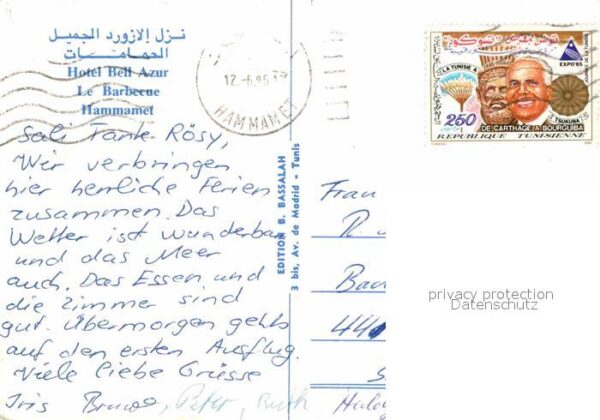 نزل الازورد الجميل
الحمامات
Hotel Bell Azur
Le Barbecue
Hammamet
12-6.86
HAMMAMET
LA TUNISIE A
EXPO'85
TSUKUBA
250
DE CARTHAGE A BOURGUIBA
REPUBLIQUE TUNISIENNE
Sali Tante Rösy,
Wir verbringen
hier herrliche Ferien
zusammen. Das
Wetter ist wunderbar
und das Meer
auch. Das Essen und
die Zimmer sind
gut. Übermorgen gehts
auf den ersten Ausflug.
Viele liebe Grüsse
Iris Bruno, Peter, Ruth
EDITION B. BASSALAH
3 bis, Av. de Madrid - Tunis
Frau
R
Ba
44
S
privacy protection
Datenschutz